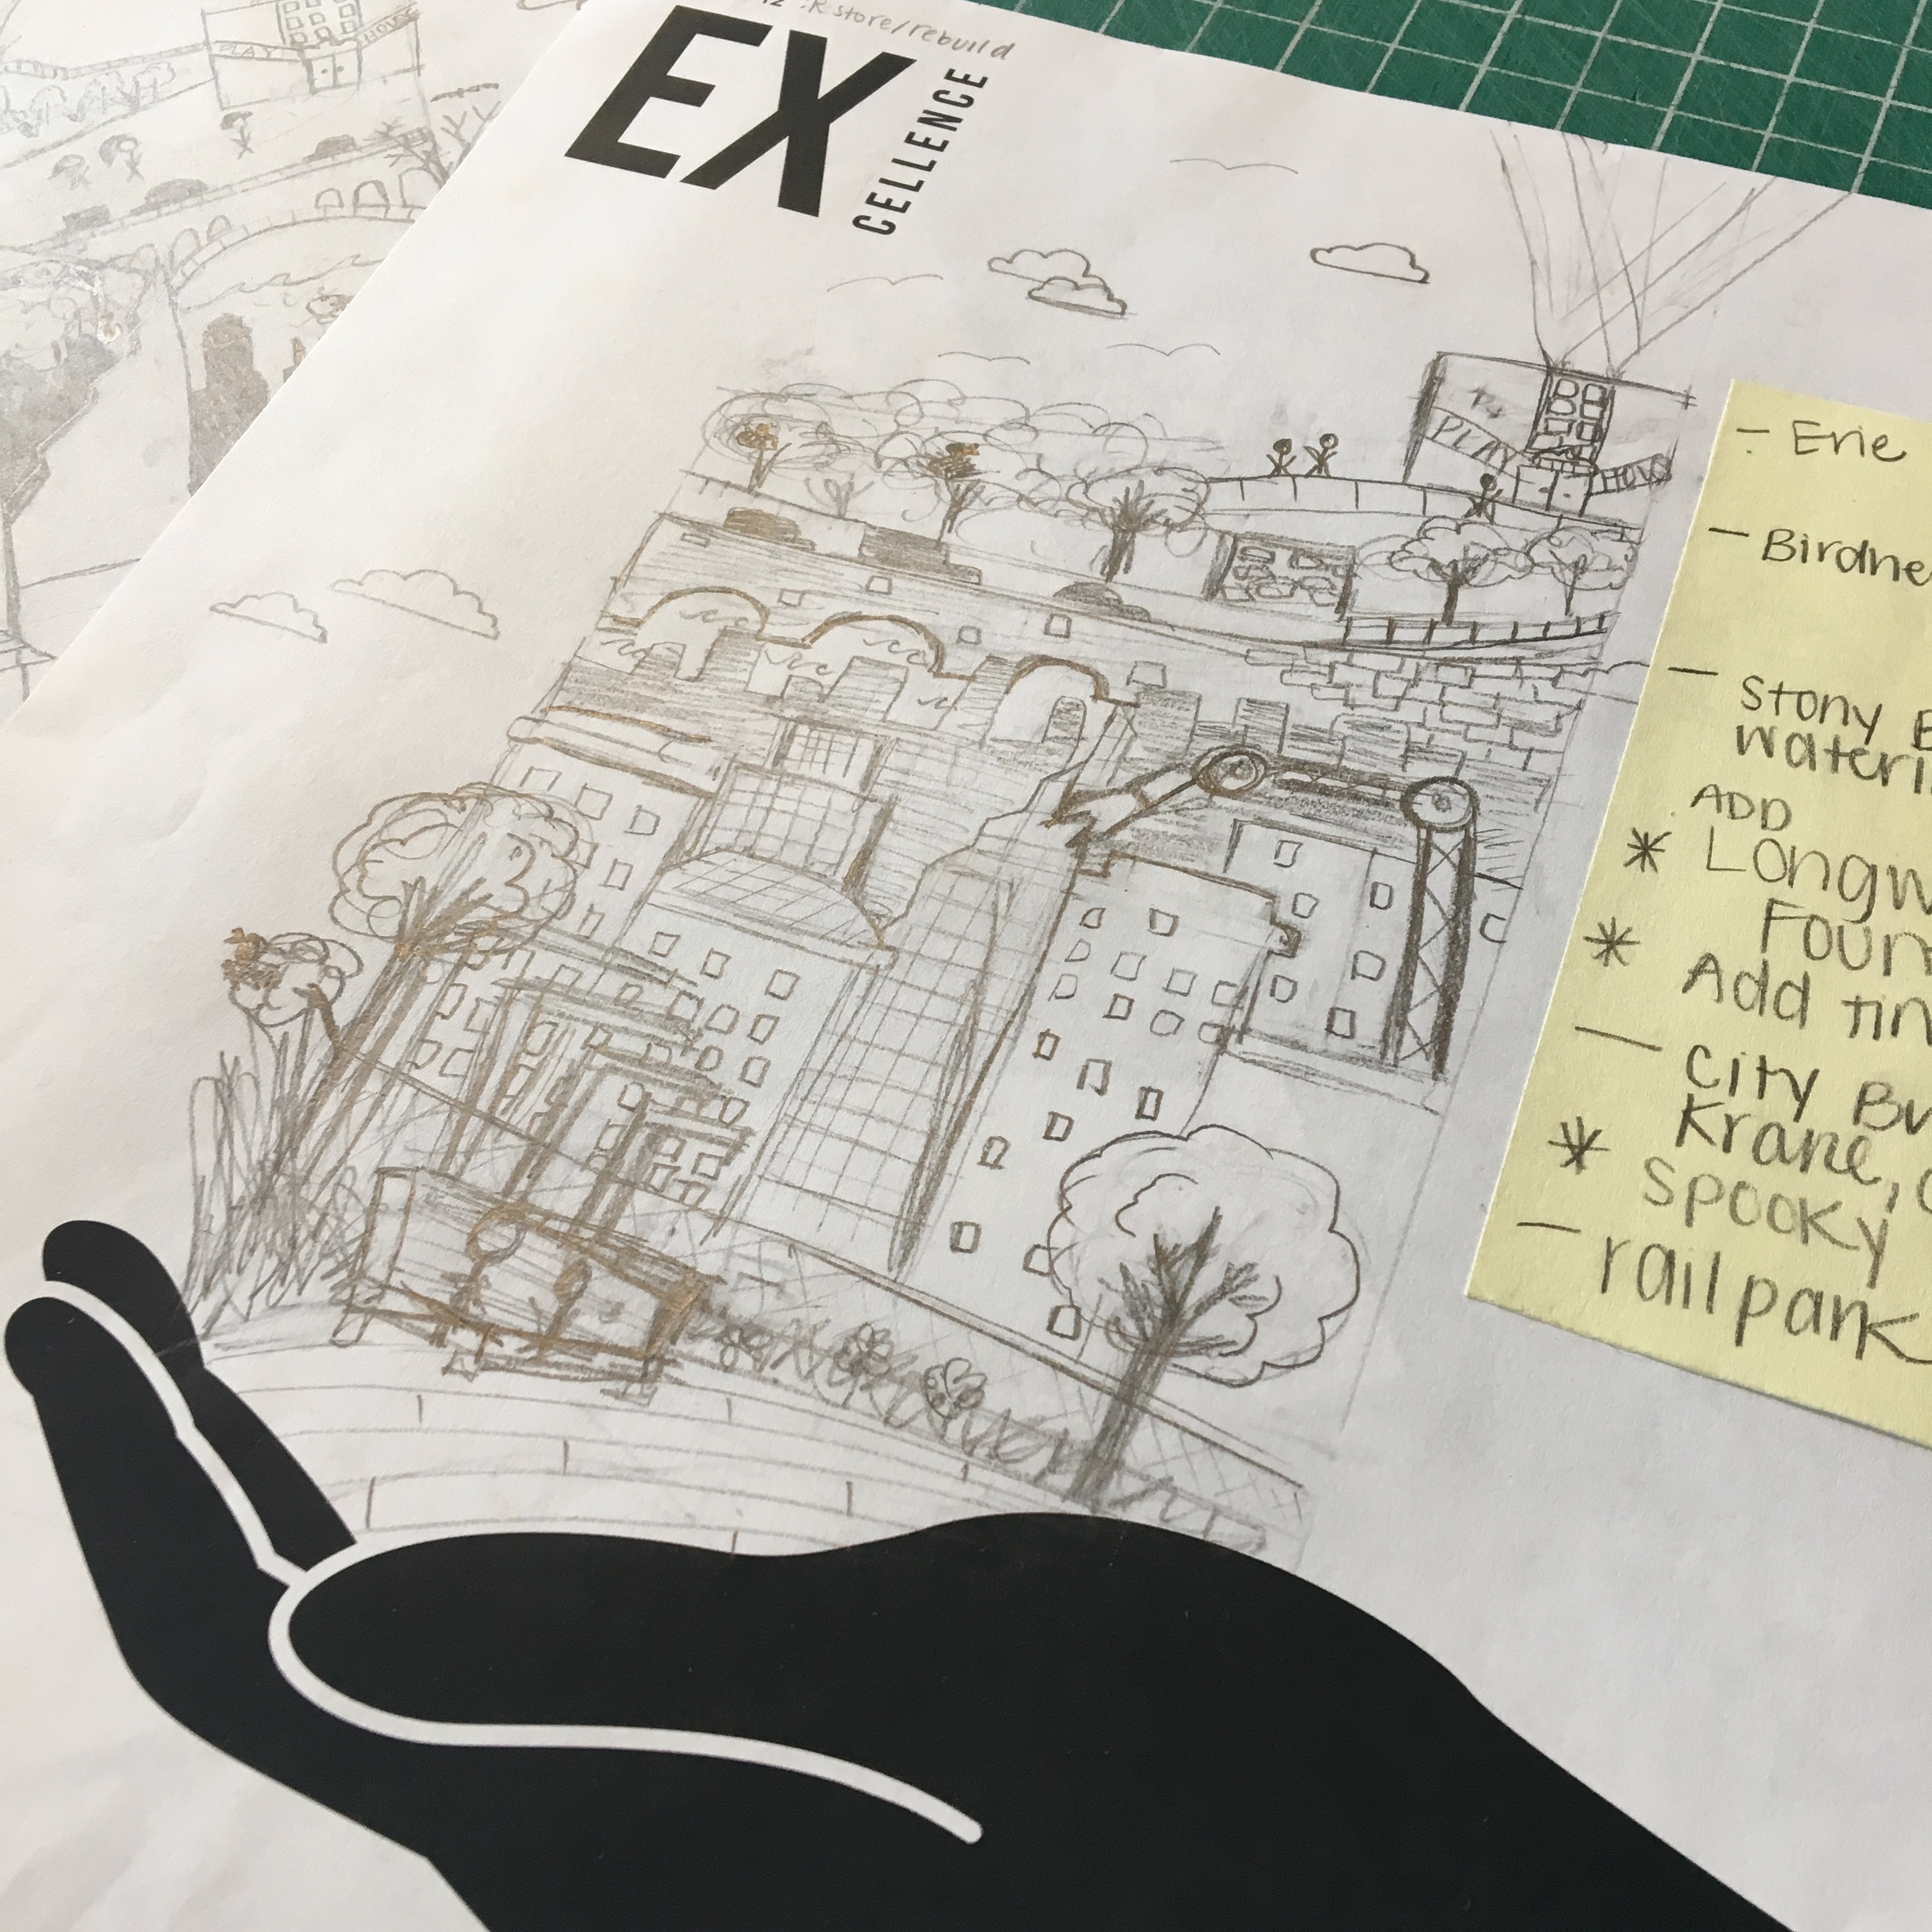 PLAY HOUSE
:R store/rebuild
EX
CELLENCE
PLAY HOUS
- Erie
- Birdne
- Stony
wateri
ADD
* Longw
Foun
* Add tin
- City Bu
Krane,
* Spooky
- railpark